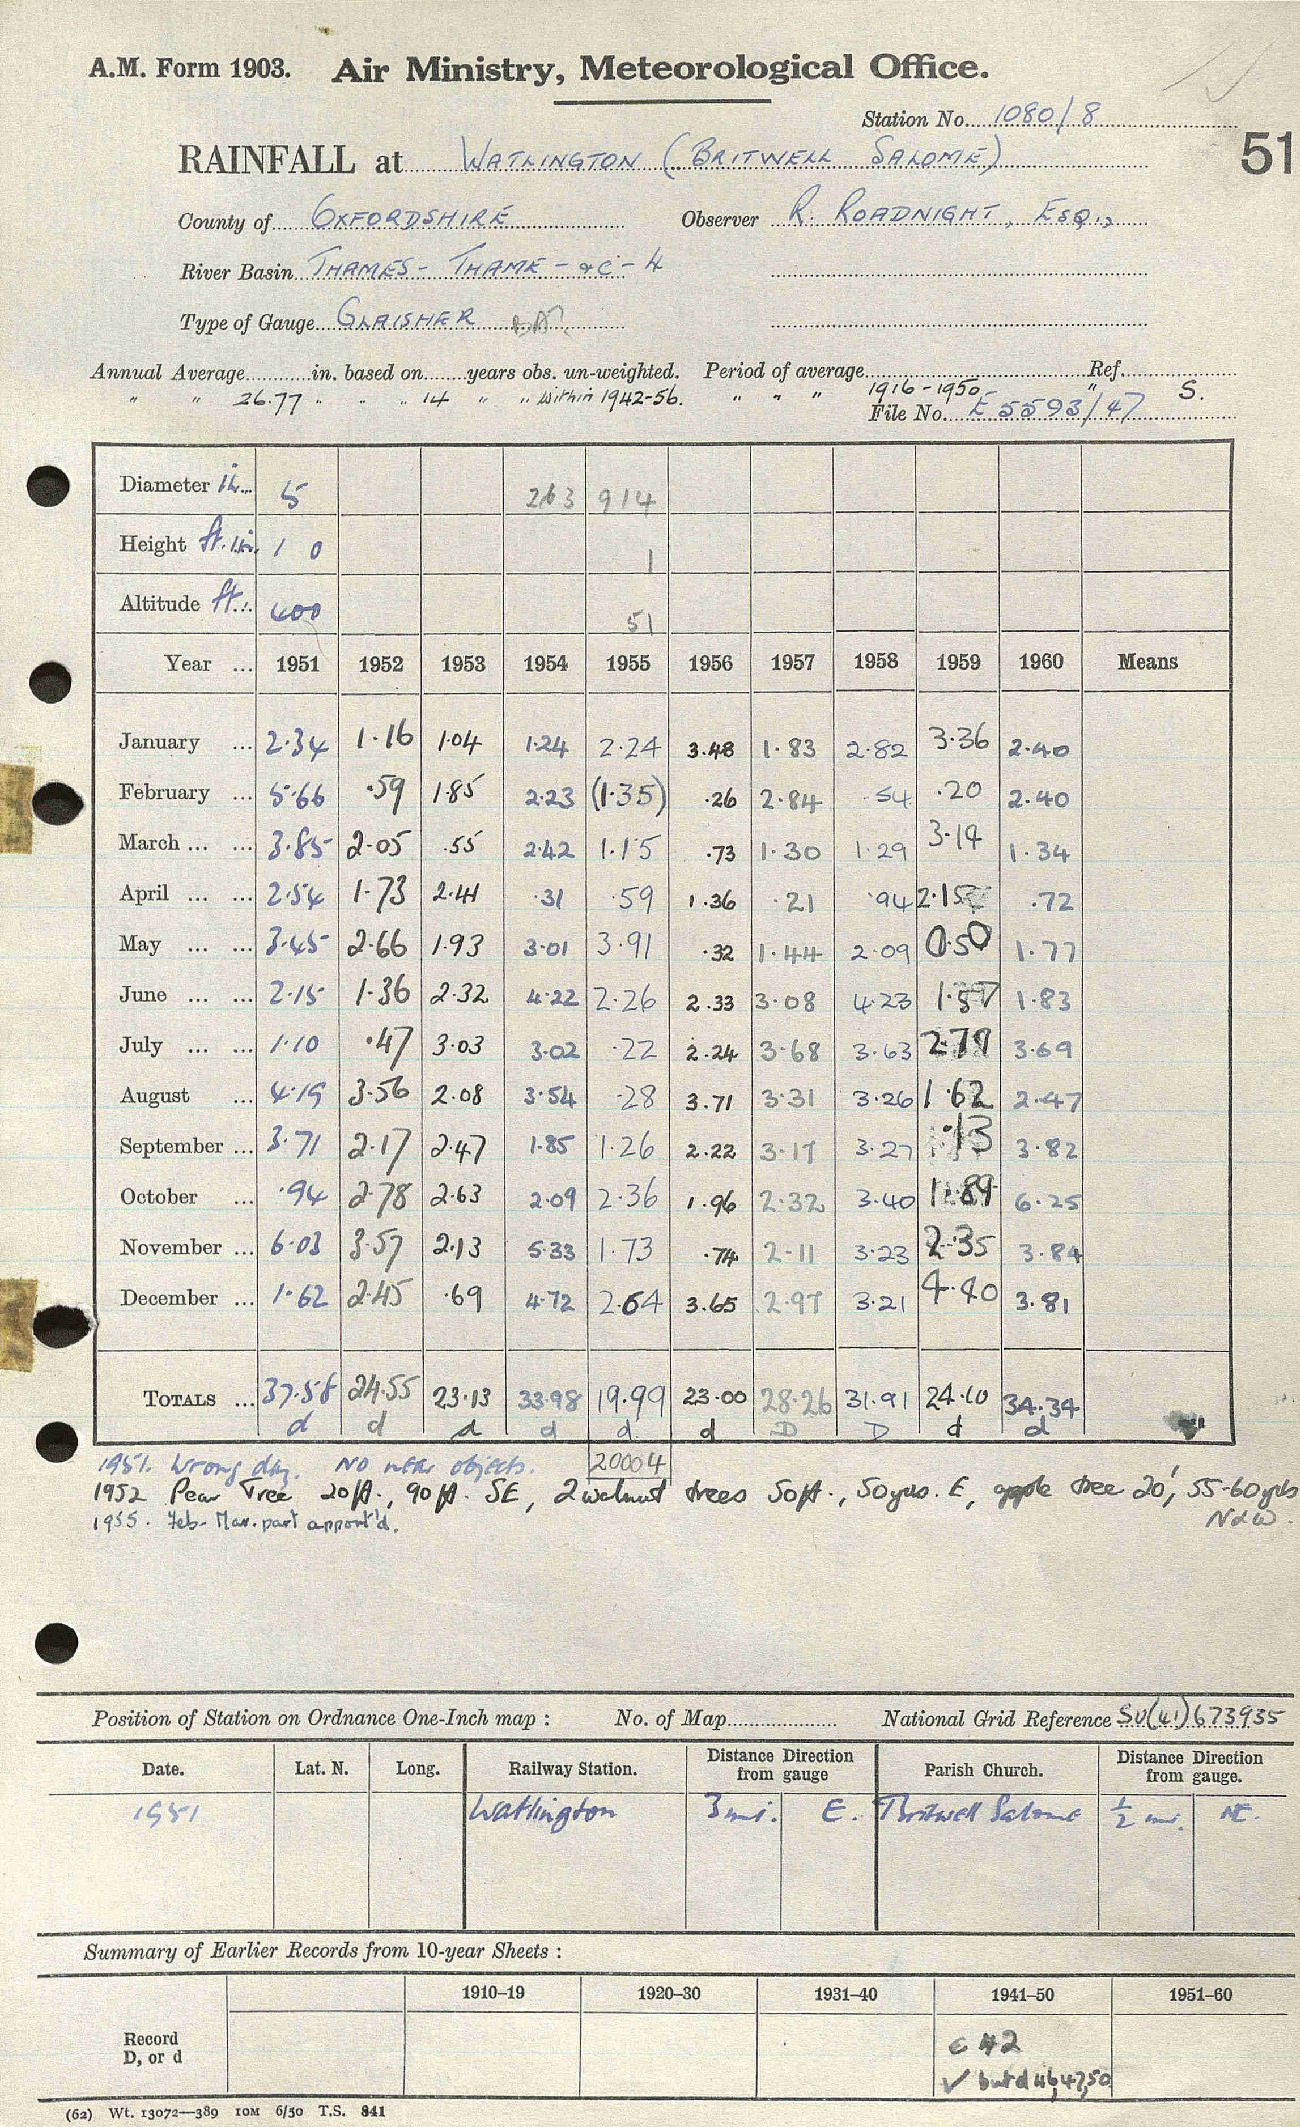 A.M. Form 1903. Air Ministry, Meteorological Office.
Station No. 1080/8
51
RAINFALL at WATLINGTON (BRITWELL SALOME)
County of OXFORDSHIRE Observer R. ROADNIGHT, ESQ.,
River Basin THAMES - THAME - &C - 4
Type of Gauge GLAISHER
Annual Average in. based on years obs. un-weighted. Period of average Ref.
" " 26.77 " " " 14 " " " within 1942-56. " " " 1916-1950 " S.
File No. E 5593/47
Diameter in. 5 263 914
Height ft. in. 1 0 1
Altitude ft. 400 51
Year ... 1951 1952 1953 1954 1955 1956 1957 1958 1959 1960 Means
January ... 2.34 1.16 1.04 1.24 2.24 3.48 1.83 2.82 3.36 2.40
February ... 5.66 .59 1.85 2.23 (1.35) .26 2.84 .54 .20 2.40
March ... ... 3.85 2.05 .55 2.42 1.15 .73 1.30 1.29 3.14 1.34
April ... ... 2.54 1.73 2.41 .31 .59 1.36 .21 .94 2.15 .72
May ... ... 3.45 2.66 1.93 3.01 3.91 .32 1.44 2.09 0.50 1.77
June ... ... 2.15 1.36 2.32 4.22 2.26 2.33 3.08 4.23 1.57 1.83
July ... ... 1.10 .47 3.03 3.02 .22 2.24 3.68 3.63 2.79 3.69
August ... 4.19 3.56 2.08 3.54 .28 3.71 3.31 3.26 1.62 2.47
September ... 3.71 2.17 2.47 1.85 1.26 2.22 3.17 3.27 .13 3.82
October ... .94 2.78 2.63 2.09 2.36 1.96 2.32 3.40 1.89 6.25
November ... 6.03 3.57 2.13 5.33 1.73 .74 2.11 3.23 2.35 3.84
December ... 1.62 2.45 .69 4.72 2.64 3.65 2.97 3.21 4.40 3.81
TOTALS ... 37.58 24.55 23.13 33.98 19.99 23.00 28.26 31.91 24.10 34.34
d d d d d d D D d d
20004
1951. Wrong day. No near objects.
1952 Pear Tree 20ft., 90ft. SE, 2 walnut trees 50ft., 50yds. E, apple tree 20', 55-60yds
N & W.
1955. Feb-Mar. part apport'd.
Position of Station on Ordnance One-Inch map : No. of Map National Grid Reference SU(41)673935
Date. Lat. N. Long. Railway Station. Distance from gauge Direction Parish Church. Distance from gauge. Direction
1951 Watlington 3 mi. E. Britwell Salome ½ mi. NE.
Summary of Earlier Records from 10-year Sheets :
1910–19 1920–30 1931–40 1941–50 1951–60
Record
D, or d
c 42
✓ but d 46,47,50
(62) Wt. 13072—389 10M 6/50 T.S. 841